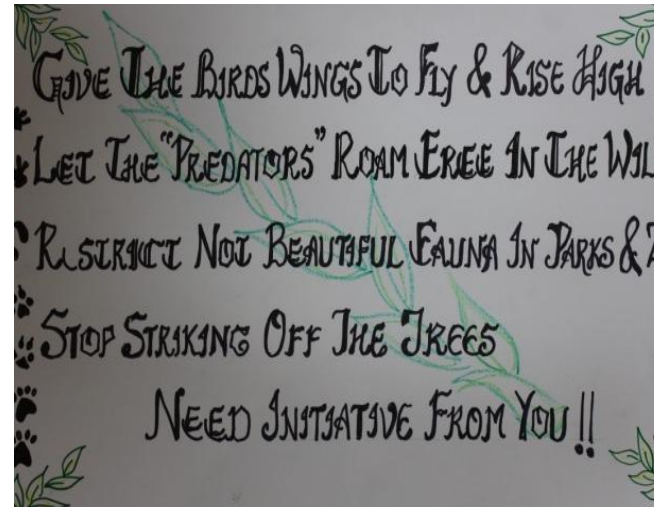 Give The Birds Wings To Fly & Rise High
Let The "Predators" Roam Free In The
Restrict Not Beautiful Fauna In Parks &
Stop Striking Off The Trees
Need Initiative From You !!